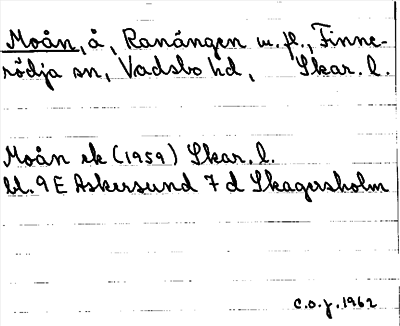 Moån, å, Ranängen m. fl., Finne-
rödja sn, Vadsbo hd, Skar. l.
Moån ek (1959) Skar. l.
bl. 9 E Askersund 7 d Skagersholm
C.O.J. 1962